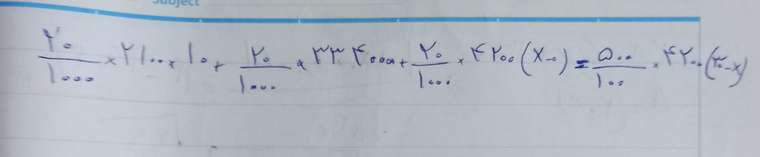 Subject
۲۰/۱۰۰۰ × ۲۱۰۰ × ۱۰ + ۲۰/۱۰۰۰ × ۳۳۴۰۰۰ + ۲۰/۱۰۰۰ × ۴۲۰۰ (x-۰) = ۵۰۰/۱۰۰ × ۴۲۰۰ (۳۰-x)